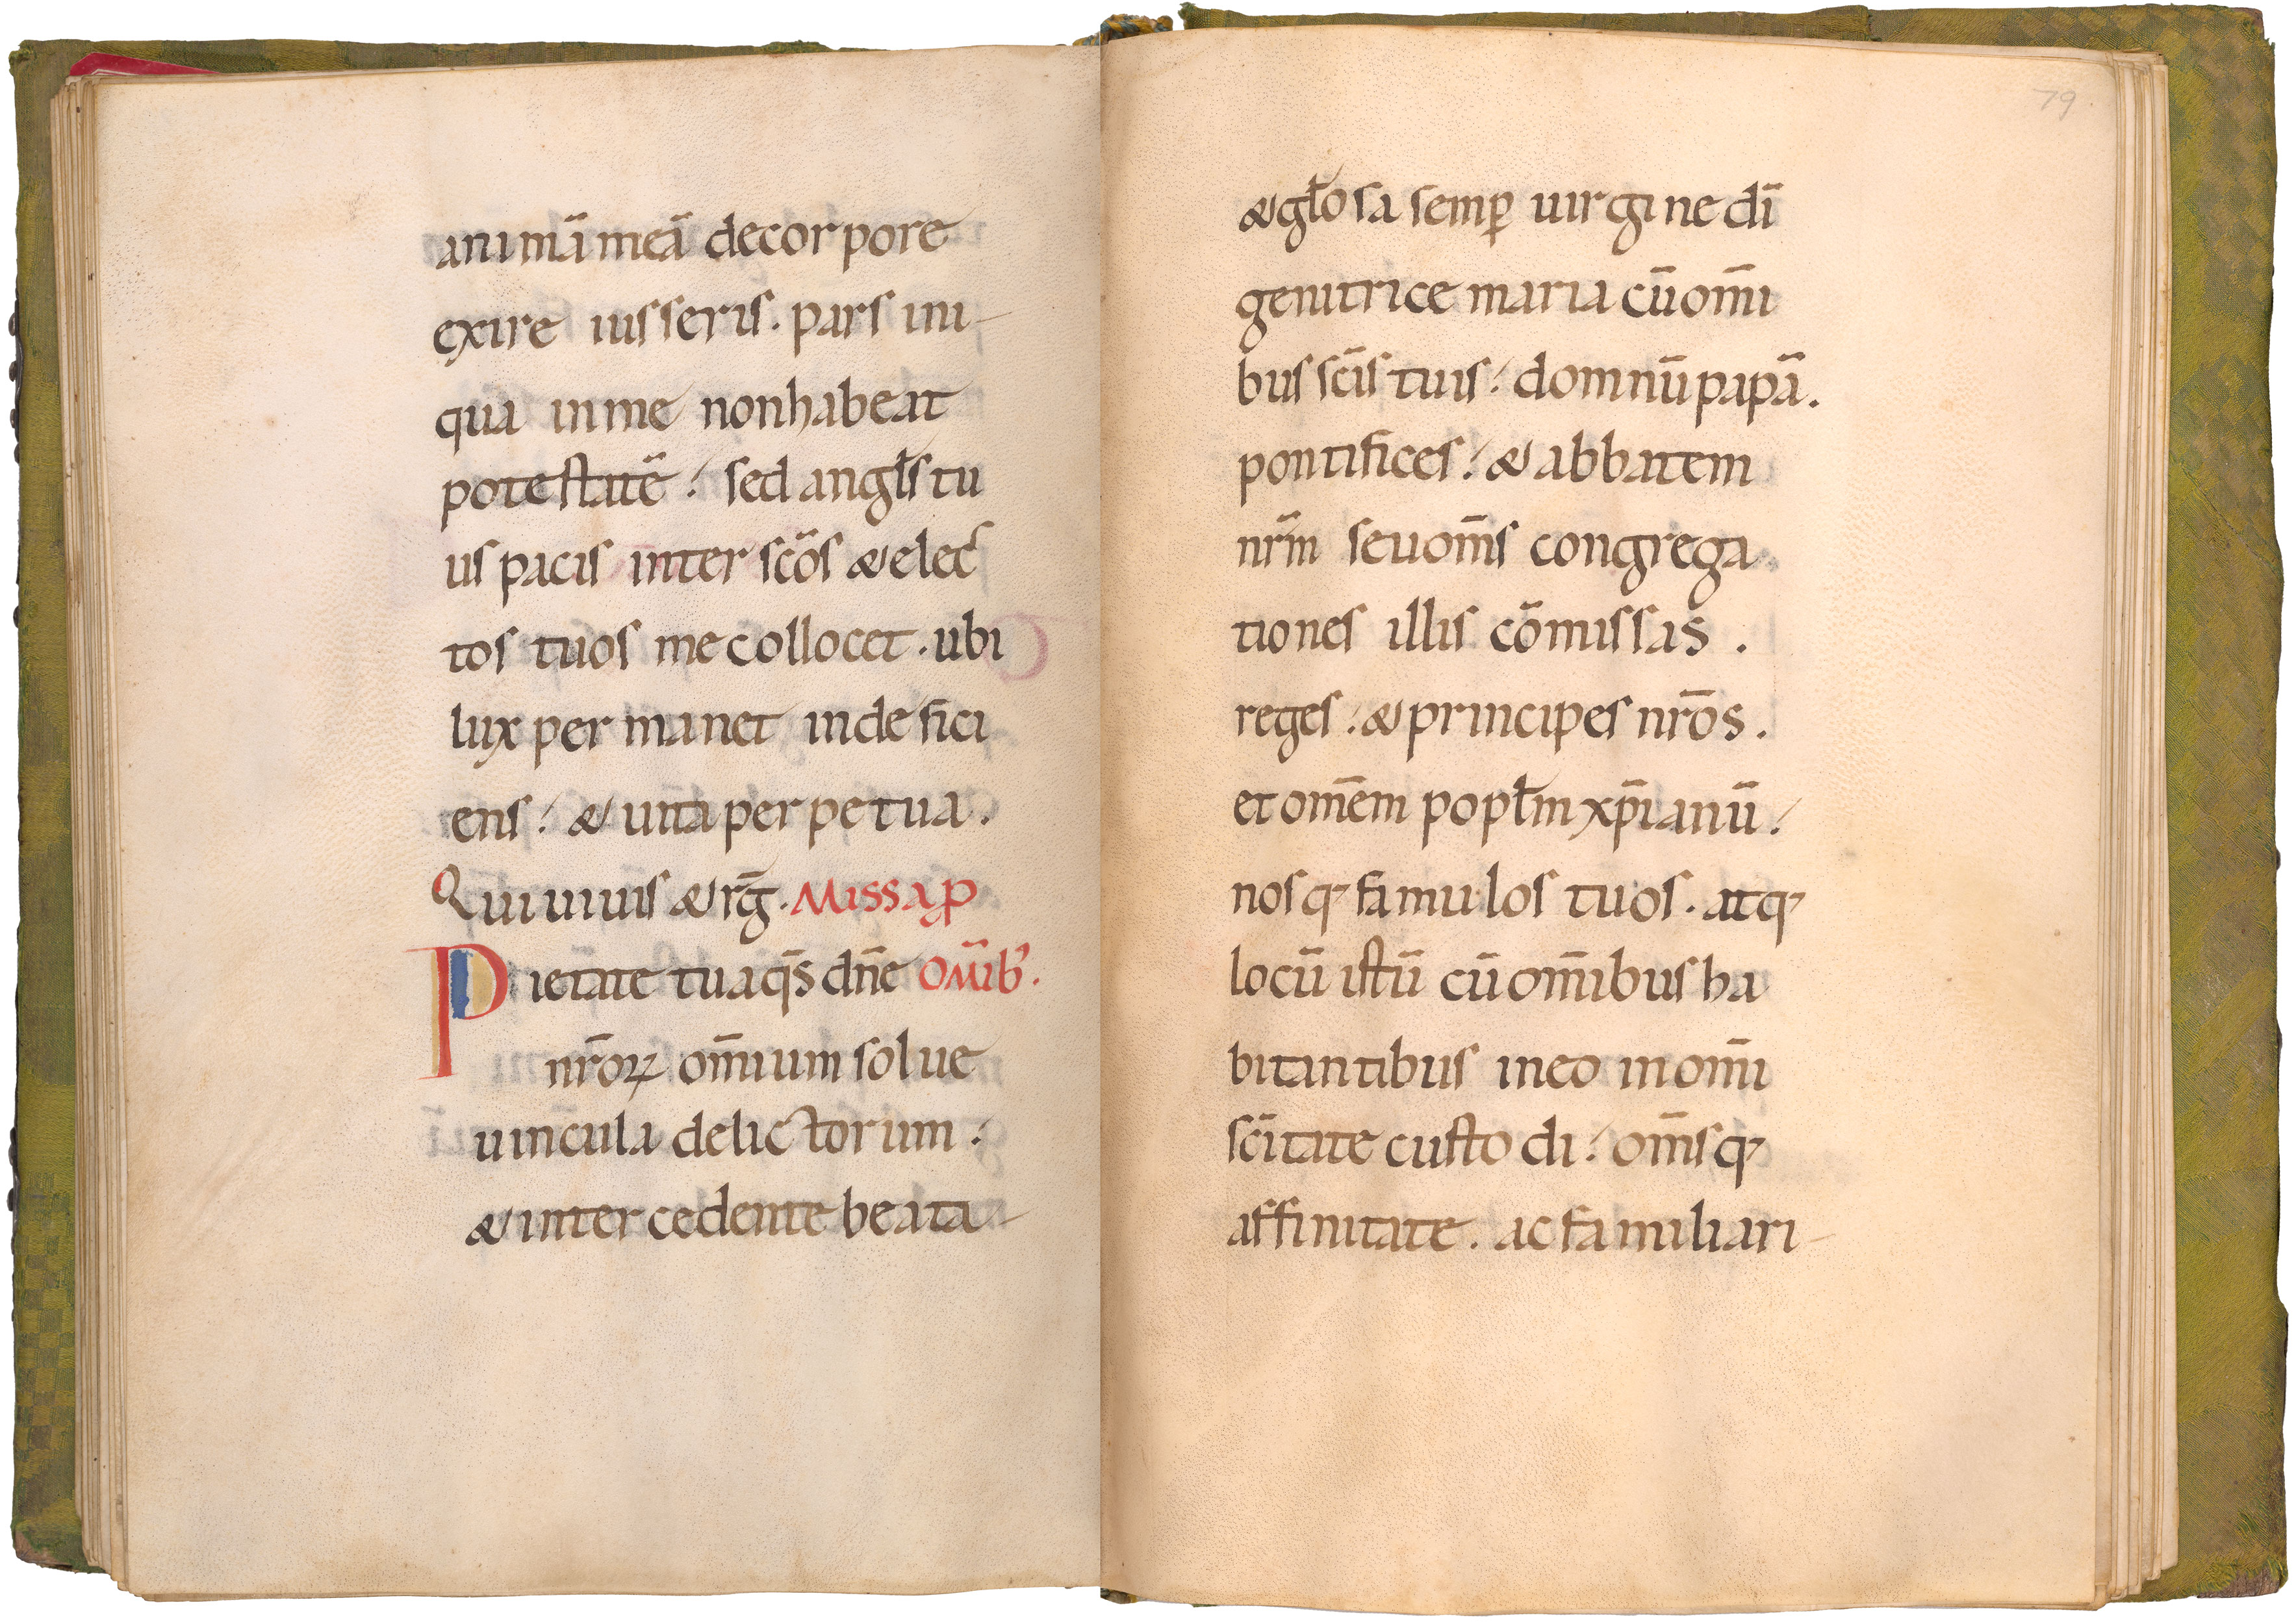 animā meā de corpore
exire iusseris. pars ini-
qua in me non habeat
potestatē. sed angłs tu
us pacis inter scōs & elec
tos tuos me collocet. ubi
lux permanet indefici
ens. & uita perpetua.
Qui uiuis & rḡ. Missa ꝓ
Pietate tua qs̄ dn̄e om̄ib'.
nr̄oꝝ om̄ium solue
uincula delictorum.
& intercedente beata
79.
& gło sa semꝑ uirgine dī
genitrice maria cū om̄i
bus scīs tuis. domnū papā.
pontifices. & abbatem
nr̄m seu om̄s congrega
tiones illis cōmissas.
reges. & principes nr̄os.
et om̄em popłm xp̄ianū.
nosq; famulos tuos. atq;
locū istū cū om̄ibus ha
bitantibus in eo in om̄i
scītate custodi. om̄sq;
affinitate. ac familiari-